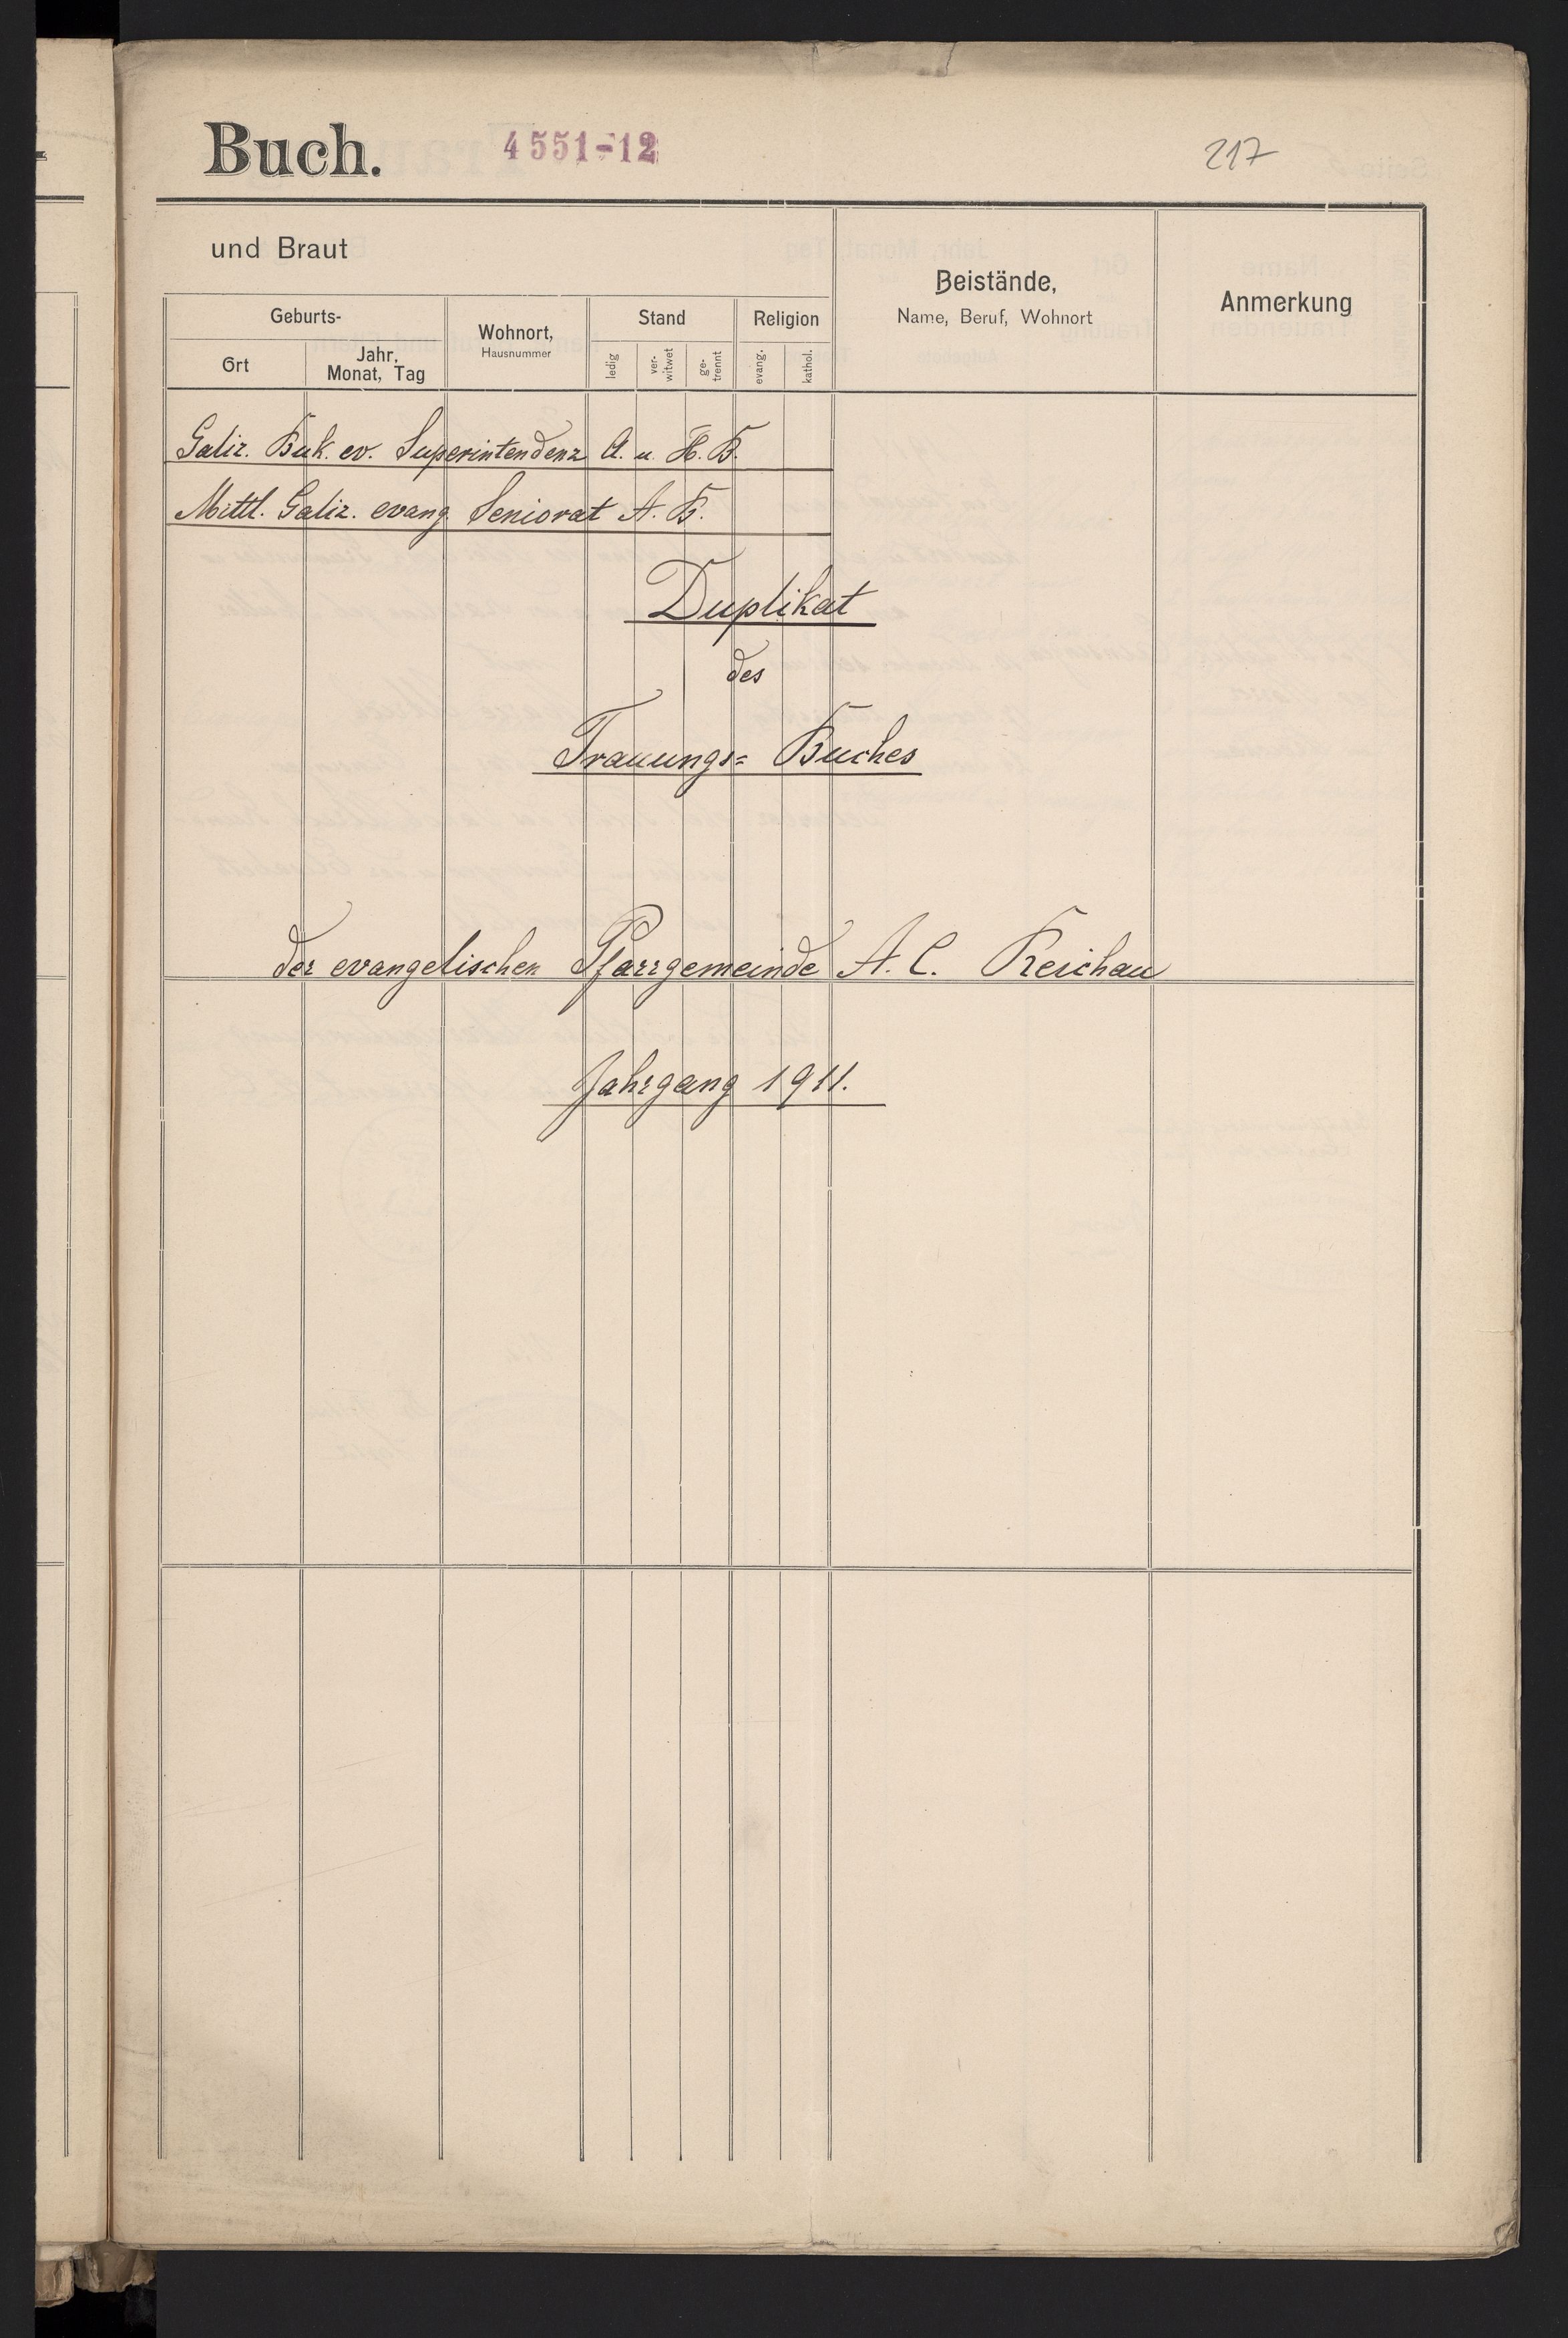 Buch.
4551-12
217
und Braut
Beistände,
Name, Beruf, Wohnort
Anmerkung
Geburts-
Wohnort,
Hausnummer
Stand
Religion
Ort
Jahr,
Monat, Tag
ledig
ver-
witwet
ge-
trennt
evang.
kathol.
Galiz. Buk. ev. Superintendenz A. u. H. B.
Mittl. Galiz. evang. Seniorat A. B.
Duplikat
des
Trauungs= Buches
der evangelischen Pfarrgemeinde A. C. Reichau
Jahrgang 1911.